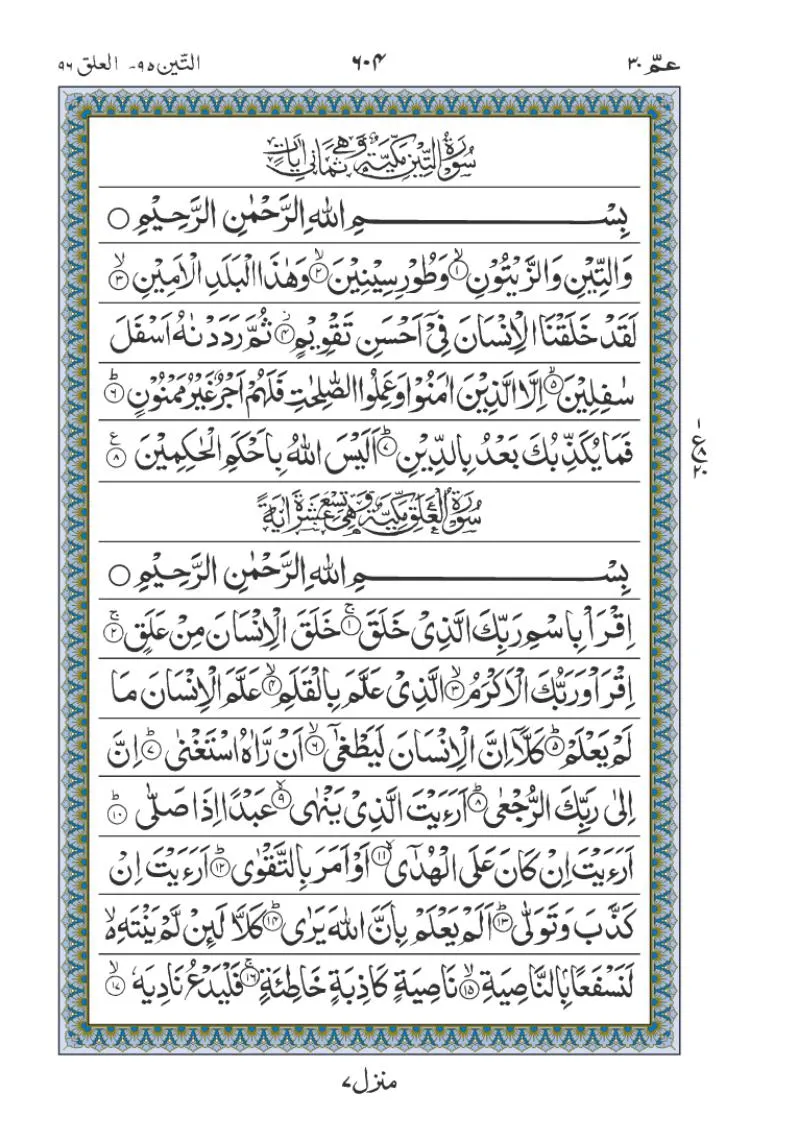 عمّ ۳۰
۶۰۴
التّين ۹۵ - العلق ۹۶
سُوْرَةُ التِّيْنِ مَكِّيَّةٌ وَّهِيَ ثَمَانِيْ اٰيَاتٍ
بِسْــــــــــــــمِ اللّٰهِ الرَّحْمٰنِ الرَّحِيْمِ ○
وَالتِّيْنِ وَالزَّيْتُوْنِ ۙ﴿۱﴾ وَطُوْرِ سِيْنِيْنَ ۙ﴿۲﴾ وَهٰذَا الْبَلَدِ الْاَمِيْنِ ۙ﴿۳﴾
لَقَدْ خَلَقْنَا الْاِنْسَانَ فِيْۤ اَحْسَنِ تَقْوِيْمٍ ؗ﴿۴﴾ ثُمَّ رَدَدْنٰهُ اَسْفَلَ
سٰفِلِيْنَ ۙ﴿۵﴾ اِلَّا الَّذِيْنَ اٰمَنُوْا وَعَمِلُوا الصّٰلِحٰتِ فَلَهُمْ اَجْرٌ غَيْرُ مَمْنُوْنٍ ؕ﴿۶﴾
فَمَا يُكَذِّبُكَ بَعْدُ بِالدِّيْنِ ؕ﴿۷﴾ اَلَيْسَ اللّٰهُ بِاَحْكَمِ الْحٰكِمِيْنَ ﴿۸﴾ ع
سُوْرَةُ الْعَلَقِ مَكِّيَّةٌ وَّهِيَ تِسْعَ عَشْرَةَ اٰيَةً
بِسْــــــــــــــمِ اللّٰهِ الرَّحْمٰنِ الرَّحِيْمِ ○
اِقْرَاْ بِاسْمِ رَبِّكَ الَّذِيْ خَلَقَ ۚ﴿۱﴾ خَلَقَ الْاِنْسَانَ مِنْ عَلَقٍ ۚ﴿۲﴾
اِقْرَاْ وَرَبُّكَ الْاَكْرَمُ ۙ﴿۳﴾ الَّذِيْ عَلَّمَ بِالْقَلَمِ ۙ﴿۴﴾ عَلَّمَ الْاِنْسَانَ مَا
لَمْ يَعْلَمْ ؕ﴿۵﴾ كَلَّاۤ اِنَّ الْاِنْسَانَ لَيَطْغٰۤى ۙ﴿۶﴾ اَنْ رَّاٰهُ اسْتَغْنٰى ؕ﴿۷﴾ اِنَّ
اِلٰى رَبِّكَ الرُّجْعٰى ؕ﴿۸﴾ اَرَءَيْتَ الَّذِيْ يَنْهٰى ۙ﴿۹﴾ عَبْدًا اِذَا صَلّٰى ؕ﴿۱۰﴾
اَرَءَيْتَ اِنْ كَانَ عَلَى الْهُدٰۤى ۙ﴿۱۱﴾ اَوْ اَمَرَ بِالتَّقْوٰى ؕ﴿۱۲﴾ اَرَءَيْتَ اِنْ
كَذَّبَ وَتَوَلّٰى ؕ﴿۱۳﴾ اَلَمْ يَعْلَمْ بِاَنَّ اللّٰهَ يَرٰى ؕ﴿۱۴﴾ كَلَّا لَئِنْ لَّمْ يَنْتَهِ ۙ
لَنَسْفَعًۢا بِالنَّاصِيَةِ ۙ﴿۱۵﴾ نَاصِيَةٍ كَاذِبَةٍ خَاطِئَةٍ ۚ﴿۱۶﴾ فَلْيَدْعُ نَادِيَهٗ ۙ﴿۱۷﴾
منزل ۷